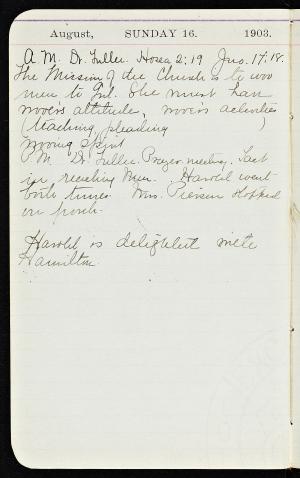 August, SUNDAY 16. 1903.
A.M. Dr. Fuller. Hosea 2:19 Jno. 17:18.
The Mission of the Church is to woo
men to God. She must have
wooer's attitude, wooer's activities
(teaching, pleading )
wooing spirit
P.M. Dr. Fuller. Prayer meeting. Tact
in reaching Men. Harold went
both times. Mrs. Pierson stopped
on porch.
Harold is delighted with
Hamilton